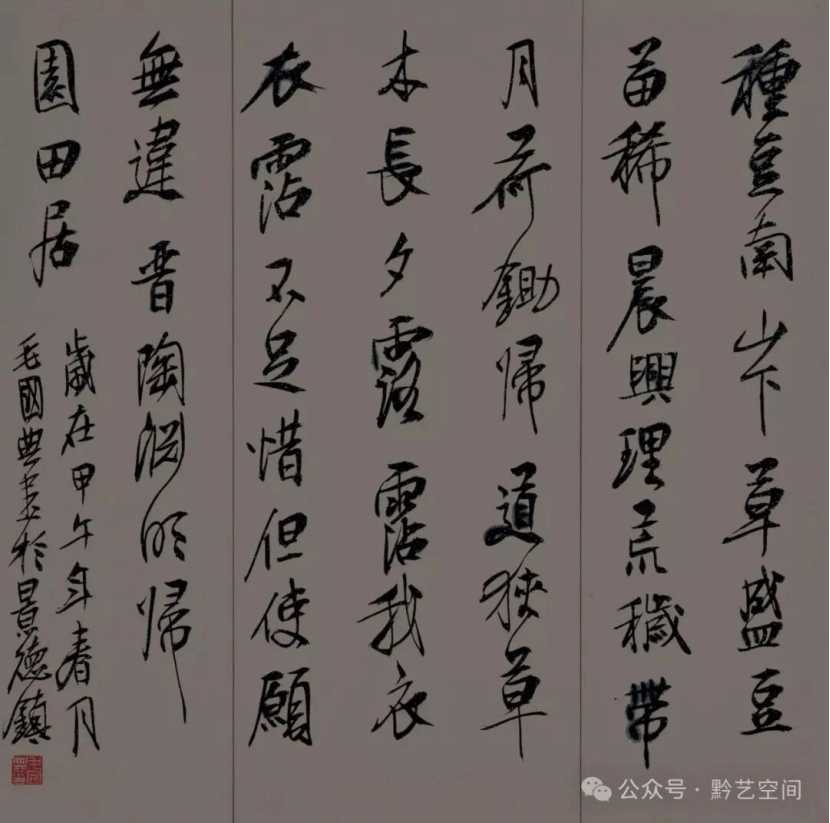 種豆南山下草盛豆
苗稀晨興理荒穢帶
月荷鋤歸道狹草
木長夕露霑我衣
衣霑不足惜但使願
無違晋陶渊明歸
園田居
歲在甲午年春月
毛國典書於景德鎮
公众号·黔艺空间